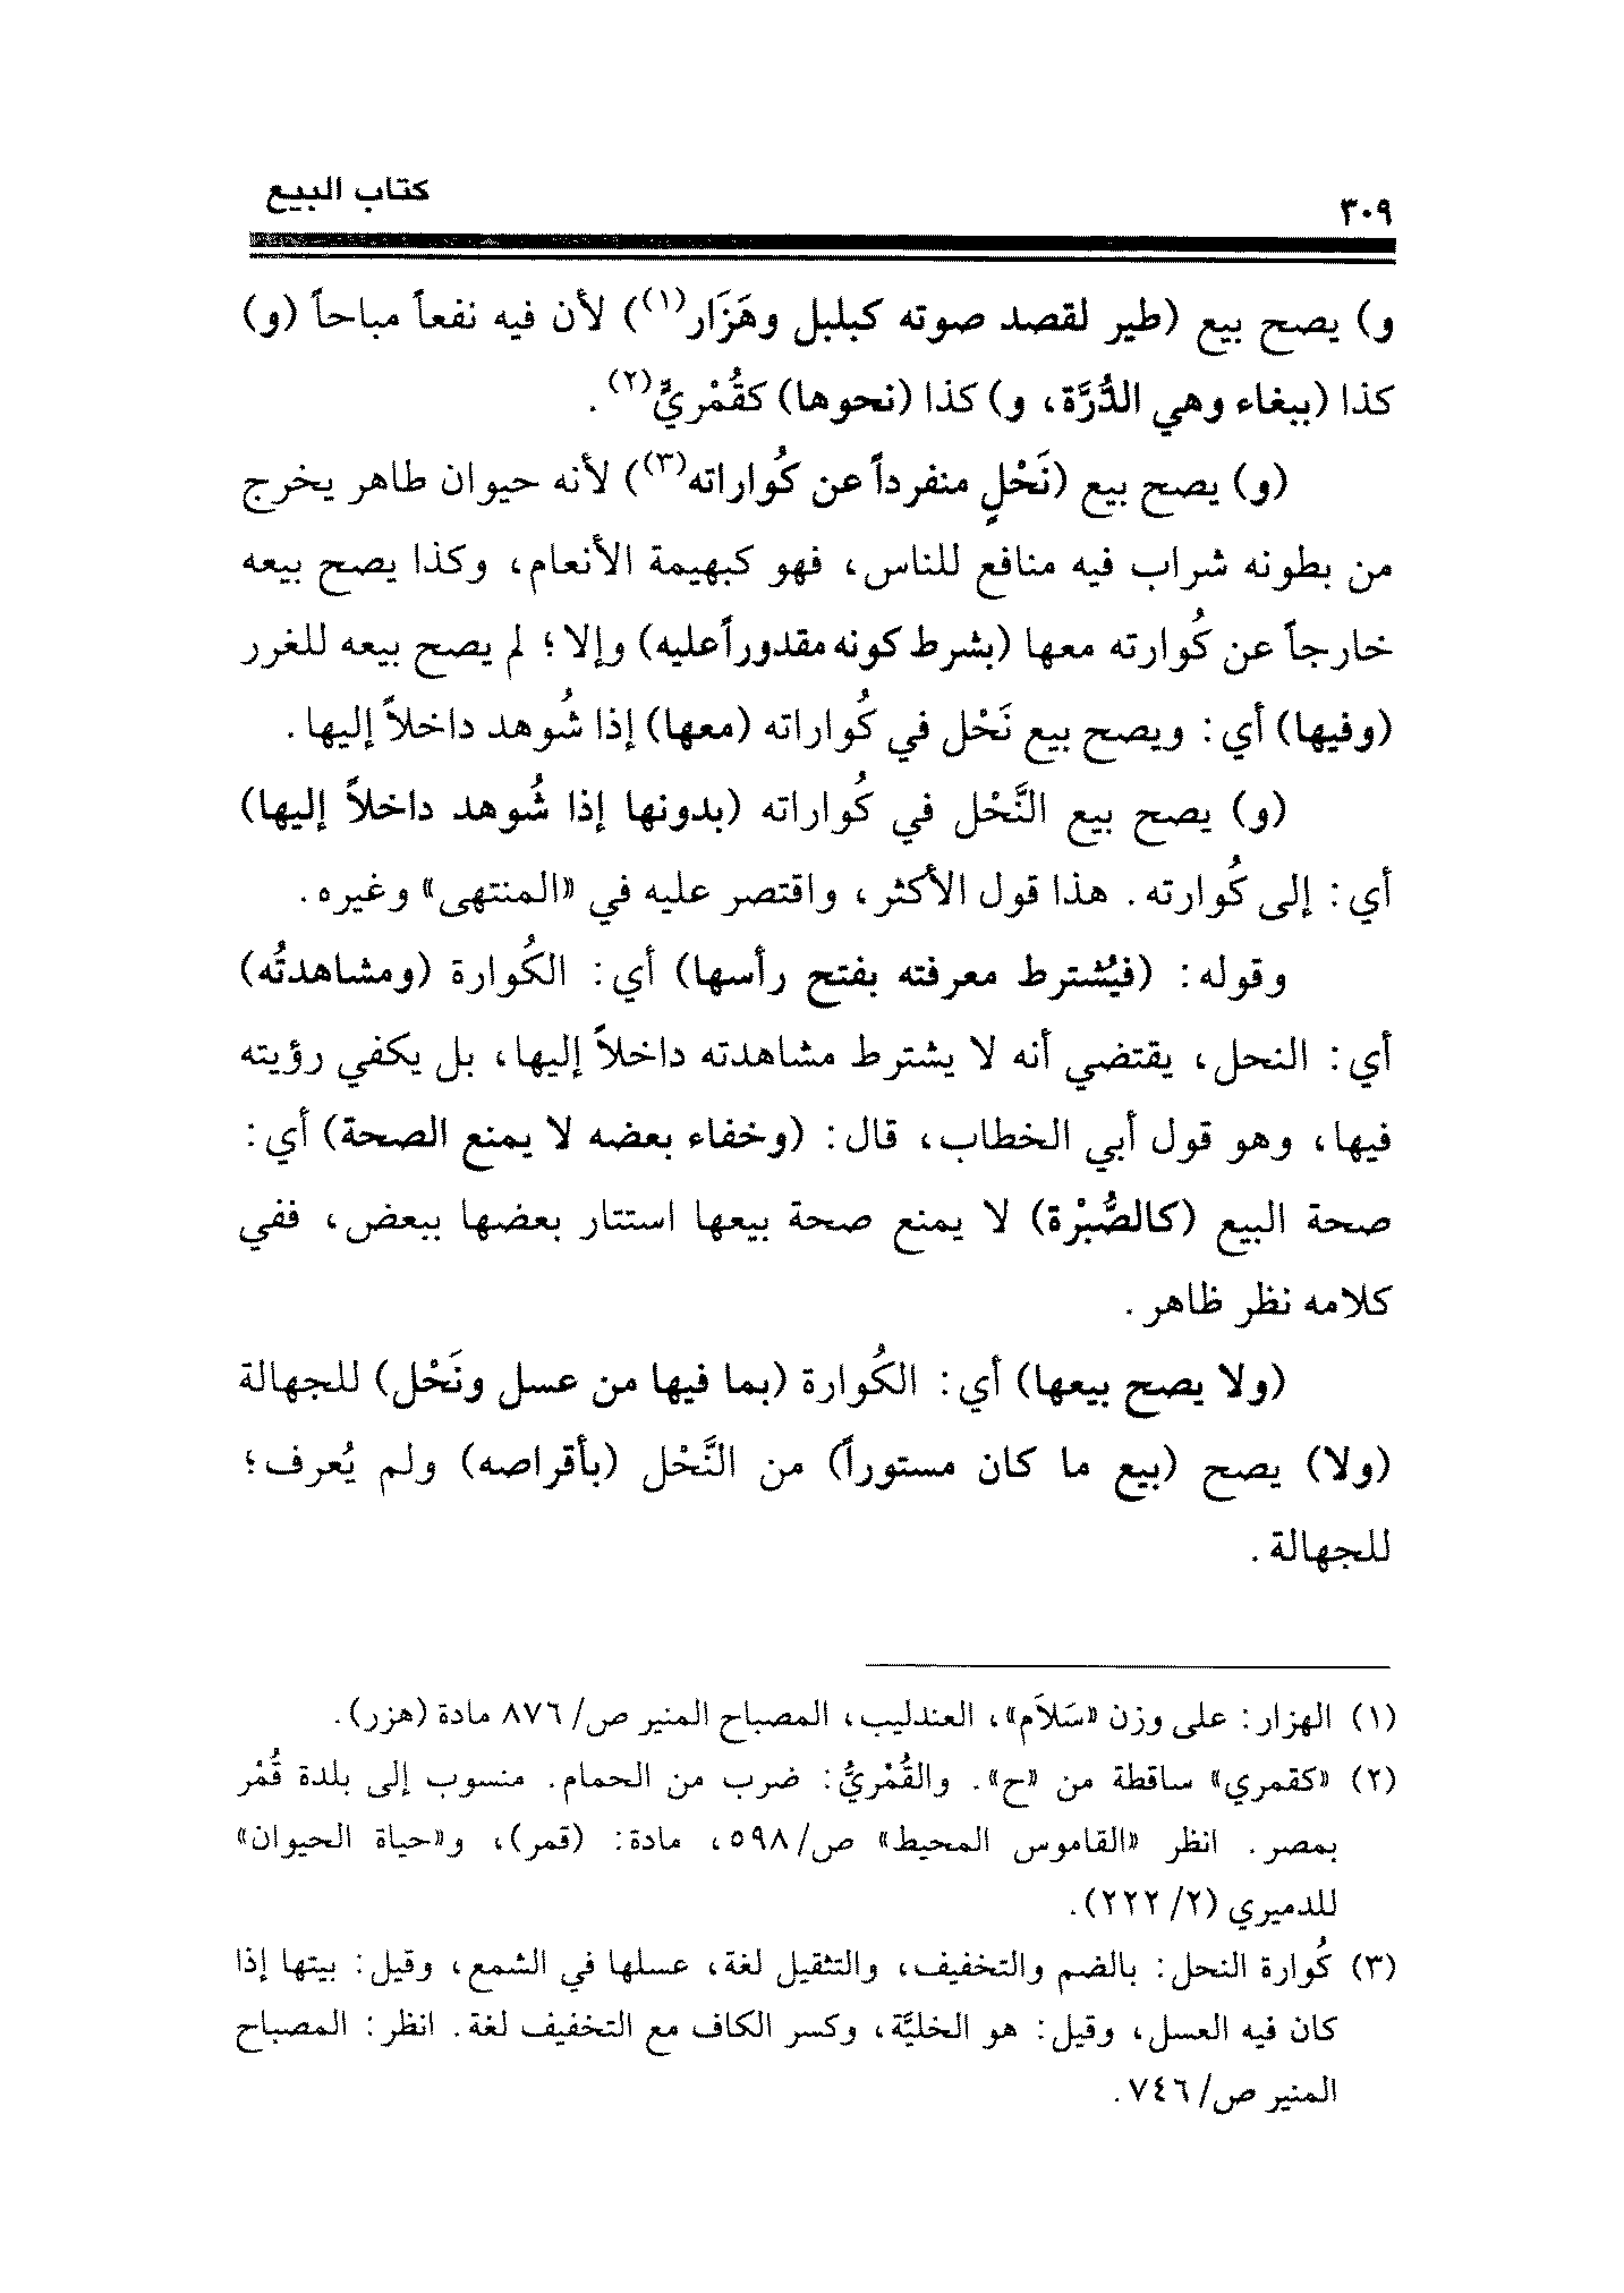 كتاب البيع
٣٠٩
و) يصح بيع (طير لقصد صوته كبلبل وهَزَار(١)) لأن فيه نفعاً مباحاً (و)
كذا (ببغاء وهي الدُّرَّة، و) كذا (نحوها) كقُمْريٍّ(٢).
(و) يصح بيع (نَحْلٍ منفرداً عن كُواراته(٣)) لأنه حيوان طاهر يخرج
من بطونه شراب فيه منافع للناس، فهو كبهيمة الأنعام، وكذا يصح بيعه
خارجاً عن كُوارته معها (بشرط كونه مقدوراً عليه) وإلا؛ لم يصح بيعه للغرر
(وفيها) أي: ويصح بيع نَحْل في كُواراته (معها) إذا شُوهد داخلاً إليها.
(و) يصح بيع النَّحْل في كُواراته (بدونها إذا شُوهد داخلاً إليها)
أي: إلى كُوارته. هذا قول الأكثر، واقتصر عليه في «المنتهى» وغيره.
وقوله: (فيُشترط معرفته بفتح رأسها) أي: الكُوارة (ومشاهدتُه)
أي: النحل، يقتضي أنه لا يشترط مشاهدته داخلاً إليها، بل يكفي رؤيته
فيها، وهو قول أبي الخطاب، قال: (وخفاء بعضه لا يمنع الصحة) أي:
صحة البيع (كالصُّبْرة) لا يمنع صحة بيعها استتار بعضها ببعض، ففي
كلامه نظر ظاهر.
(ولا يصح بيعها) أي: الكُوارة (بما فيها من عسل ونَحْل) للجهالة
(ولا) يصح (بيع ما كان مستوراً) من النَّحْل (بأقراصه) ولم يُعرف؛
للجهالة.
(١) الهزار: على وزن «سَلاَم»، العندليب، المصباح المنير ص/٨٧٦ مادة (هزر).
(٢) «كقمري» ساقطة من «ح». والقُمْريُّ: ضرب من الحمام. منسوب إلى بلدة قُمْر
بمصر. انظر «القاموس المحيط» ص/٥٩٨، مادة: (قمر)، و«حياة الحيوان»
للدميري (٢/ ٢٢٢).
(٣) كُوارة النحل: بالضم والتخفيف، والتثقيل لغة، عسلها في الشمع، وقيل: بيتها إذا
كان فيه العسل، وقيل: هو الخليَّة، وكسر الكاف مع التخفيف لغة. انظر: المصباح
المنير ص/٧٤٦.